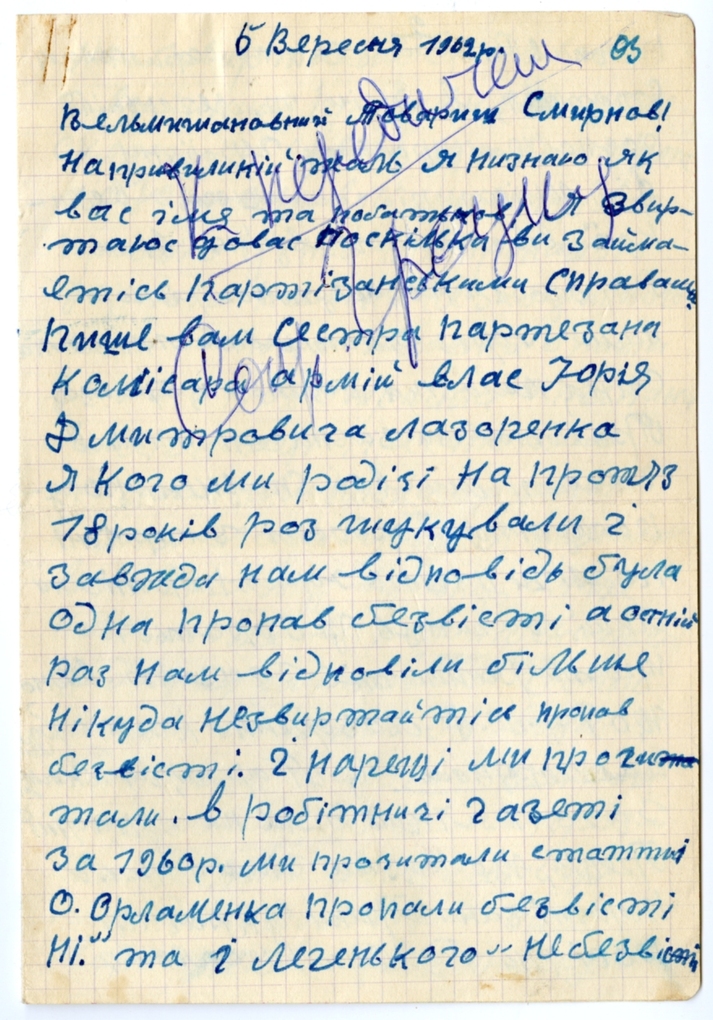 5 Вересня 1962р.
Вельмишановний Товариш Смирнов!
На привиликий жаль я низнаю як
вас імя та побатькові Я Звир-
таюс довас поскілька ви Займа-
етісь партізанськими Справами
Пише вам Сестра партезана
Комісара армій влас Юрія
Дмитровича Лазоренка
Якого ми родізі на протяз
18 років роз шукували і
Завжди нам відповідь була
одна пропав безвісті а остній
раз нам відповіли більше
Нікуда незвиртайтісь пропав
безвісті. І нарещі ми прочи
тали. в робітничі газеті
За 1960р. ми прочитали статті
О. Орламенка пропали безвісті
Ні." та і легенького „ Небезвісті